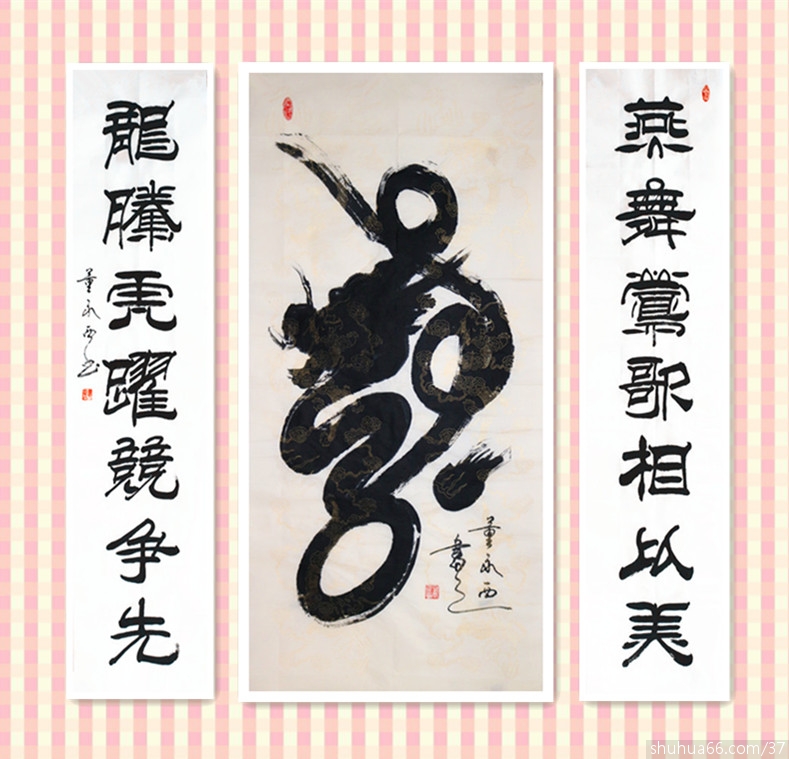 燕舞鶯歌相以美
龍騰虎躍競争先
董永西書
董永西
書
shuhua66.com/37